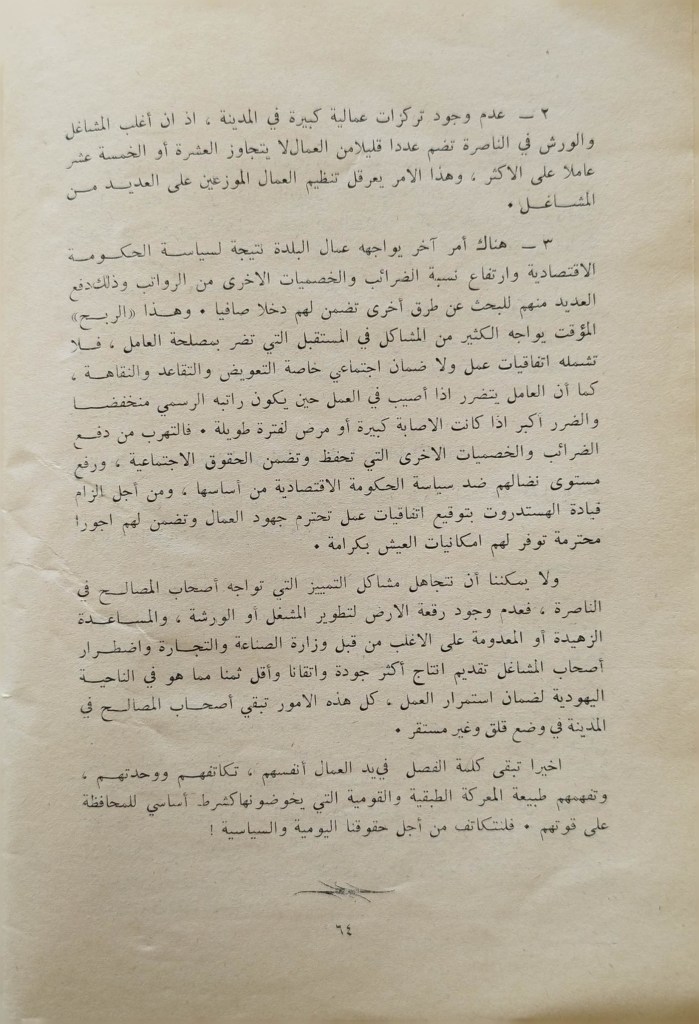 ٢ ــ عدم وجود تركزات عمالية كبيرة في المدينة ، اذ ان أغلب المشاغل
والورش في الناصرة تضم عددا قليلامن العماللا يتجاوز العشرة أو الخمسة عشر
عاملا على الاكثر ، وهذا الامر يعرقل تنظيم العمال الموزعين على العديد مـن
المشـاغـل •
٣ ــ هناك أمر آخر يواجهه عمال البلدة نتيجة لسياسة الحكـومـة
الاقتصادية وارتفاع نسبة الضرائب والخصميات الاخرى من الرواتب وذلكدفع
العديد منهم للبحث عن طرق أخرى تضمن لهم دخلا صافيا • وهـذا «الربـح»
المؤقت يواجه الكثير من المشاكل في المستقبل التي تضر بمصلحة العامل ، فـلا
تشمله اتفاقيات عمل ولا ضمان اجتماعي خاصة التعويض والتقاعد والنقاهة ،
كما أن العامل يتضرر اذا أصيب في العمل حين يكون راتبه الرسمي منخفضـا
والضرر أكبر اذا كانت الاصابة كبيرة أو مرض لفترة طويلة • فالتهرب من دفـع
الضرائب والخصميات الاخرى التي تحفظ وتضمن الحقوق الاجتماعية ، ورفع
مستوى نضالهم ضد سياسة الحكومة الاقتصادية من أساسها ، ومن أجل الزام
قيادة الهستدروت بتوقيع اتفاقيات عمل تحترم جهود العمال وتضمن لهم اجورا
محترمة توفر لهم امكانيات العيش بكرامة •
ولا يمكننا أن نتجاهل مشاكل التمييز التي تواجه أصحاب المصالـح في
الناصرة ، فعدم وجود رقعة الارض لتطوير المشغل أو الورشة ، والمسـاعـدة
الزهيدة أو المعدومة على الاغلب من قبل وزارة الصناعة والتجـارة واضطـرار
أصحاب المشاغل تقديم انتاج أكثر جودة واتقانا وأقل ثمنا مما هو في الناحيـة
اليهودية لضمان استمرار العمل ، كل هذه الامور تبقي أصحـاب المصالـح في
المدينة في وضع قلق وغير مستقر •
اخيرا تبقى كلمة الفصل فييد العمال أنفسهم ، تكاتفهـم ووحدتهـم ،
وتفهمهم طبيعة المعركة الطبقية والقومية التي يخوضونهاكشرط أساسي للمحافظة
على قوتهم • فلنتكاتف من أجل حقوقنا اليومية والسياسية !
٦٤